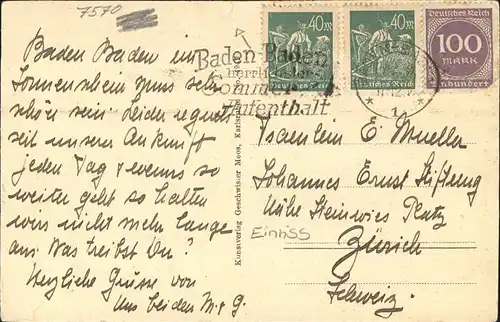 7570
Baden Baden im
Sonnenschein muss sehr
schön sein. Leider regnets
seit unserer Ankunft
jeden Tag & wenns so
weiter geht so halten
wirs nicht mehr lange
aus. Was treibst Du?
Herzliche Grüsse von
uns beiden M & G.
Kunstverlag Geschwister Moos, Karlsruhe
Baden-Baden
herrlichster
Sommer
Aufenthalt
40M
Deutsches Reich
40M
Deutsches Reich
Deutsches Reich
100
MARK
Einhundert
1
Fräulein E. Muella
Johannes Ernst Stiftung
Nähe Steinwies Platz
Einriss
Zürich
Schweiz.